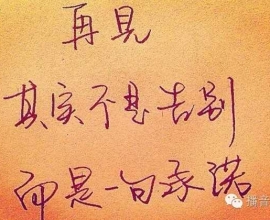 再见
其实不是告别
而是一句承诺
播音